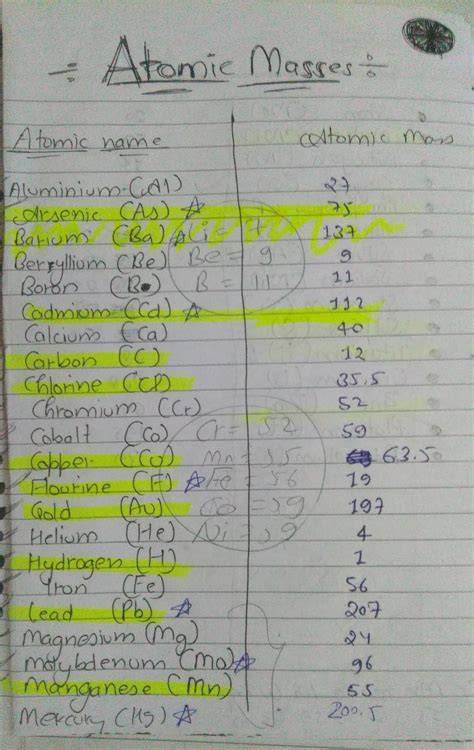 ÷ Atomic Masses ÷
Atomic name Atomic Mass
Aluminium (Al) 27
Arsenic (As) 75
Barium (Ba) 137
Beryllium (Be) Be = 9 9
Boron (B) B = 11 11
Cadmium (Cd) 112
Calcium (Ca) 40
Carbon (C) 12
Chlorine (Cl) 35.5
Chromium (Cr) 52
Cobalt (Co) Cr = 52 59
Copper (Cu) Mn = 55 63.5
Flourine (F) Fe = 56 19
Gold (Au) Co = 59 197
Helium (He) Ni = 59 4
Hydrogen (H) 1
Iron (Fe) 56
Lead (Pb) 207
Magnesium (Mg) 24
Molybdenum (Mo) 96
Manganese (Mn) 55
Mercury (Hg) 200.5